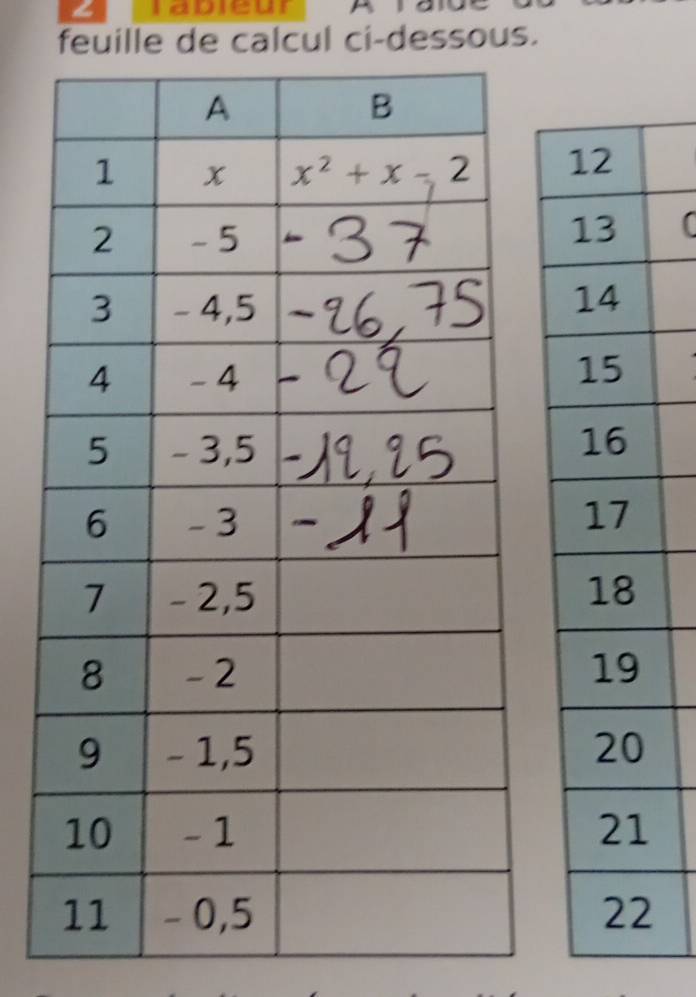 2 Tableur
feuille de calcul ci-dessous.
A B
1 x x² + x - 2
2 - 5 - 37
3 - 4,5 -26,75
4 - 4 - 22
5 - 3,5 -12,25
6 - 3 - 11
7 - 2,5
8 - 2
9 - 1,5
10 - 1
11 - 0,5
12
13
14
15
16
17
18
19
20
21
22